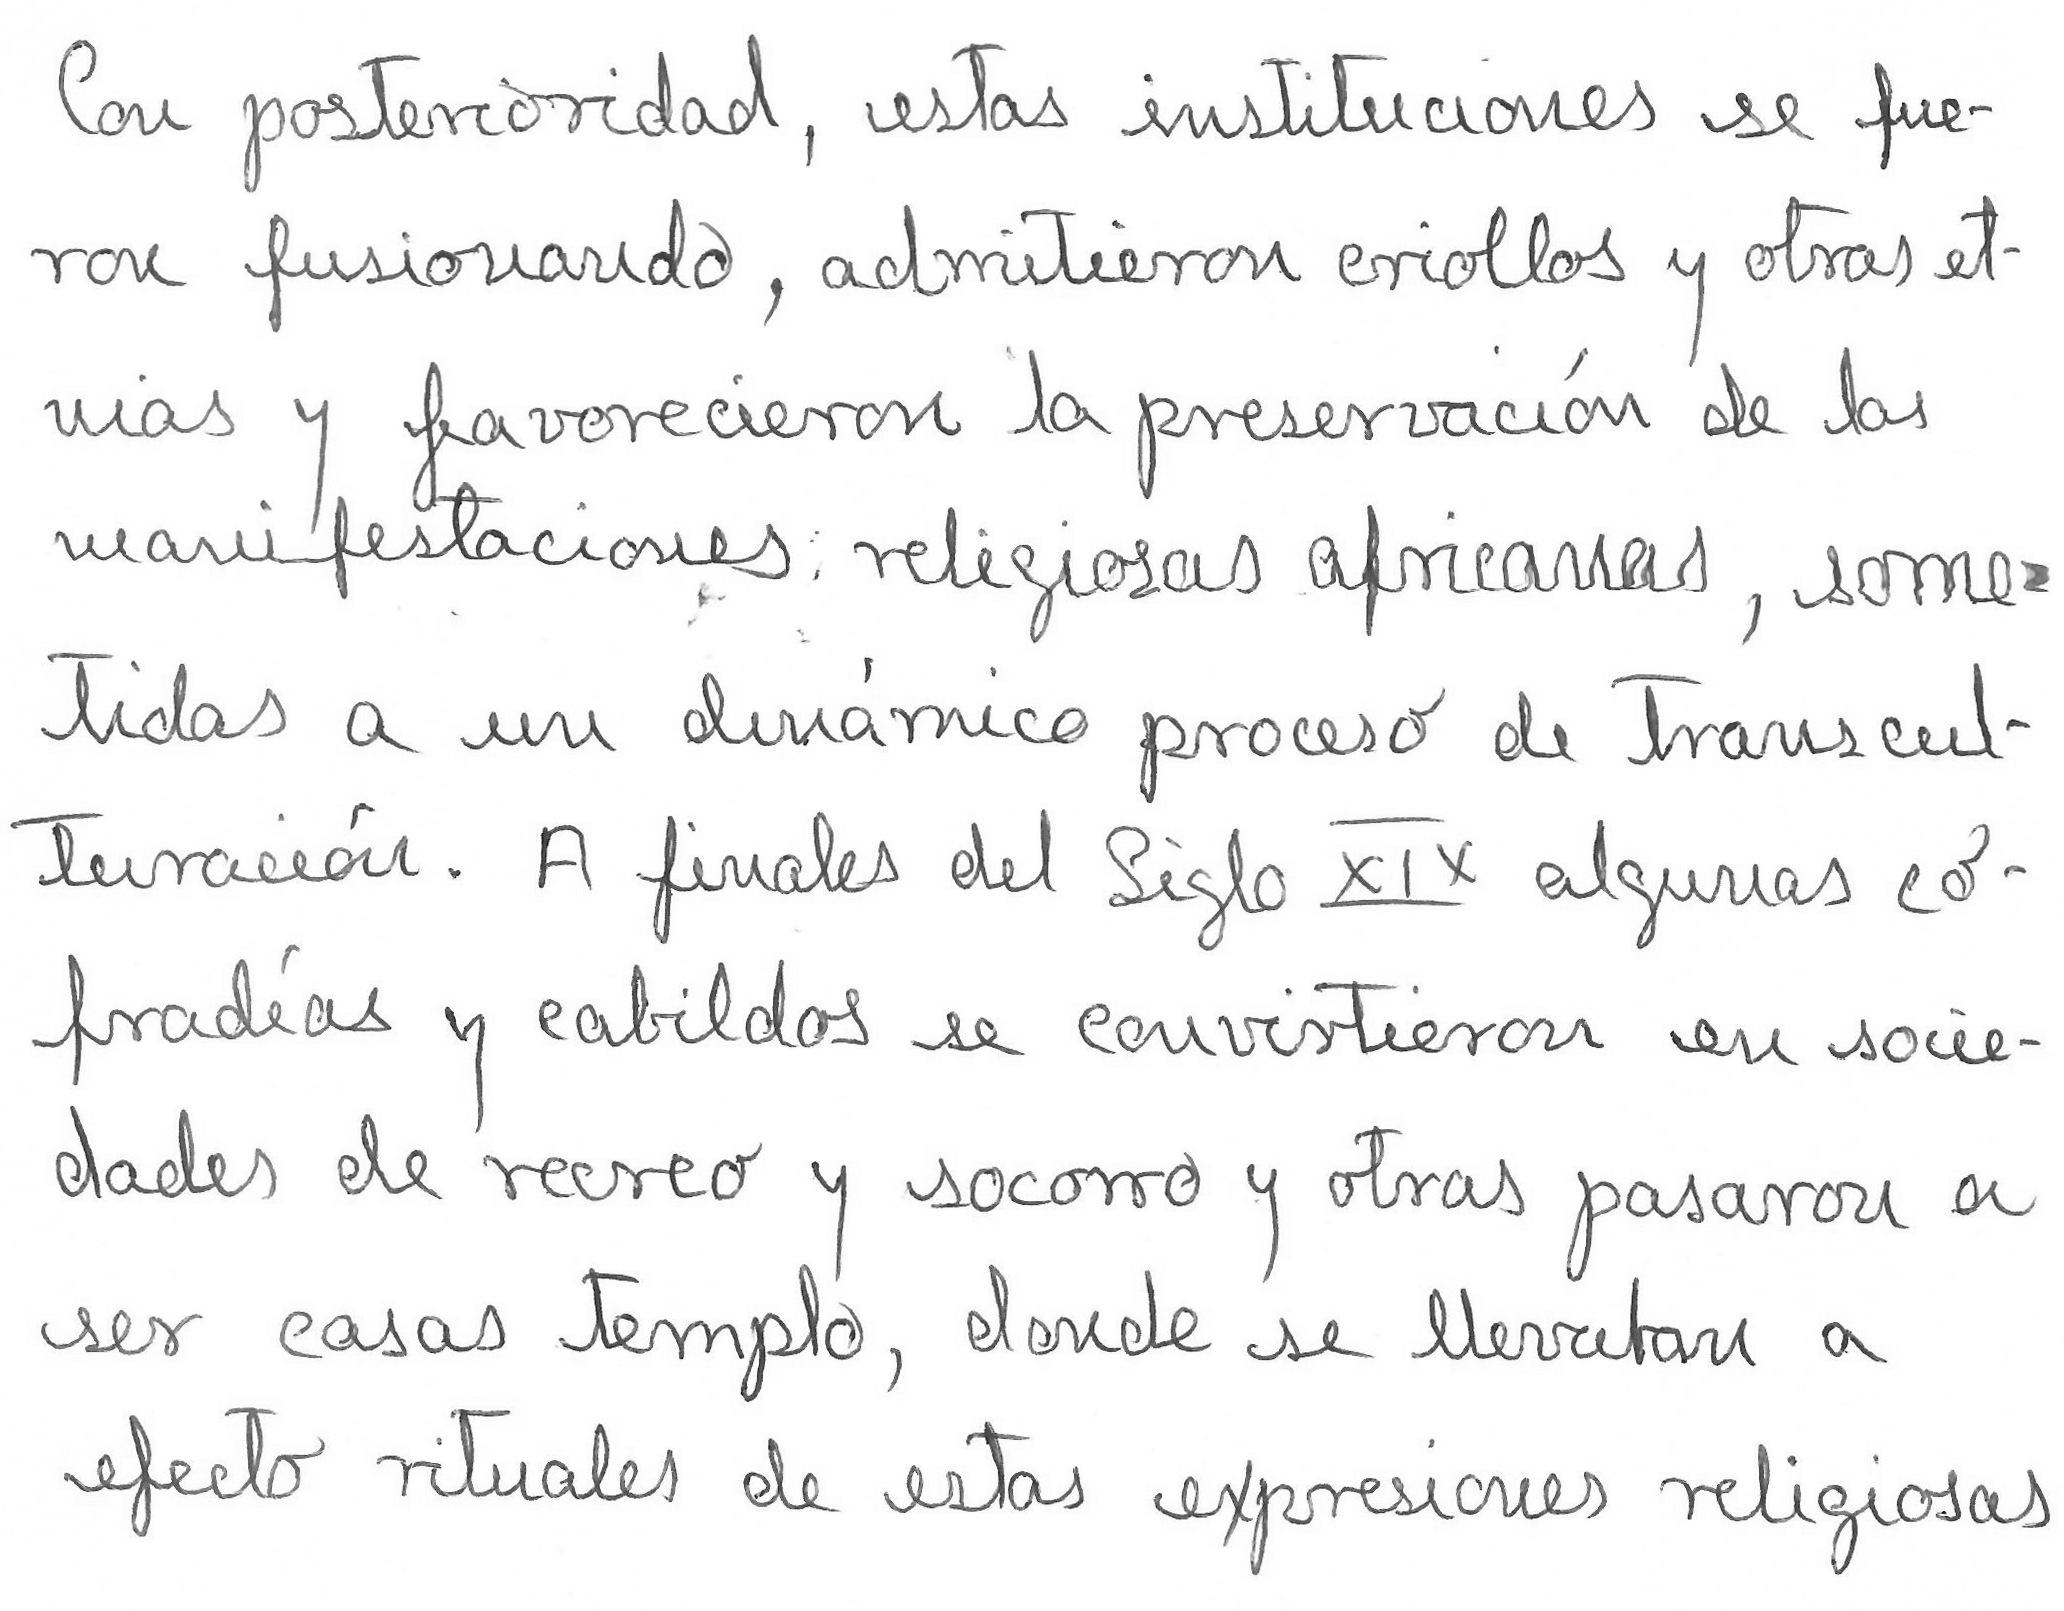 Con posterioridad, estas instituciones se fue-
ron fusionando, admitieron criollos y otras et-
nias y favorecieron la preservación de las
manifestaciones religiosas africanas, some-
tidas a un dinámico proceso de transcul-
turación. A finales del Siglo XIX algunas co-
fradías y cabildos se convirtieron en socie-
dades de recreo y socorro y otras pasaron a
ser casas templo, donde se llevaban a
efecto rituales de estas expresiones religiosas